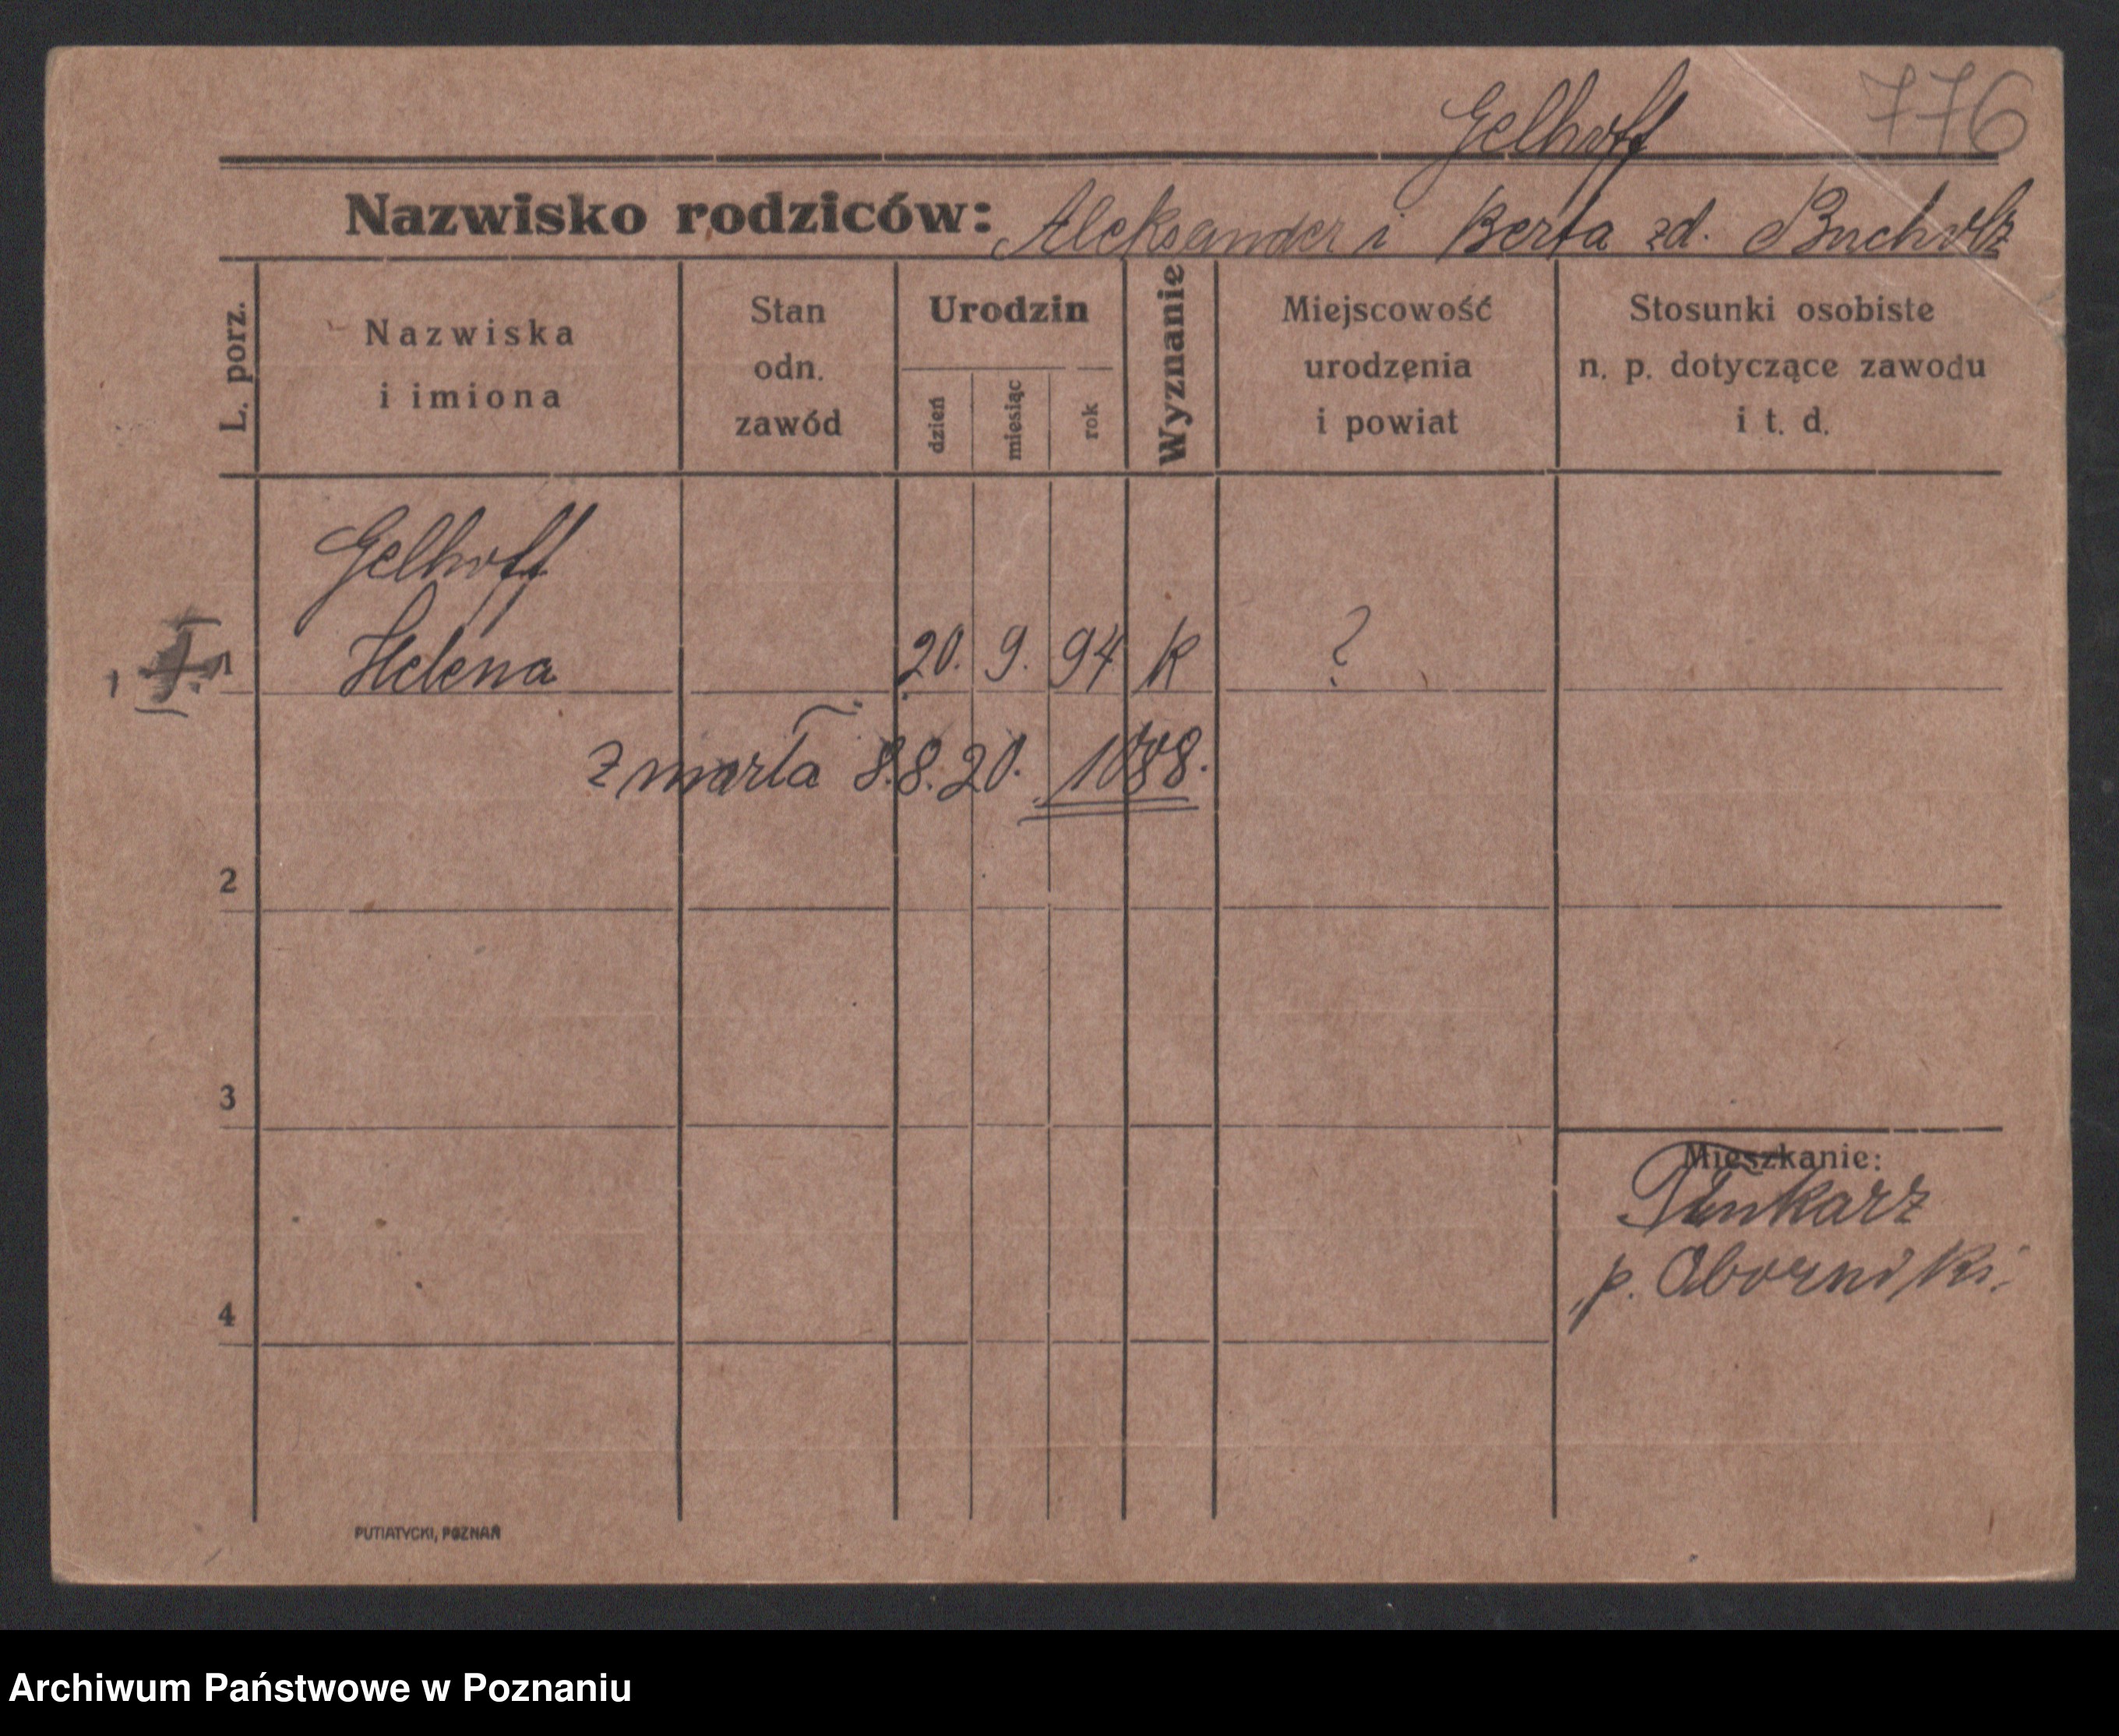 776
Gelhoff
Nazwisko rodziców: Aleksander i Berta zd. Bucholz
L. porz.
Nazwiska
i imiona
Stan
odn.
zawód
Urodzin
dzień
miesiąc
rok
Wyznanie
Miejscowość
urodzenia
i powiat
Stosunki osobiste
n. p. dotyczące zawodu
i t. d.
Gelhoff
1 Helena 20. 9. 94 K ?
zmarła 8.8.20. 1088.
2
3
Mieszkanie:
p. Oborniki.
4
PUTIATYCKI, POZNAŃ
Archiwum Państwowe w Poznaniu